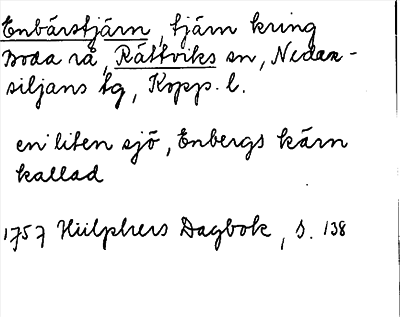 Enbärstjärn, tjärn kring
Boda rå, Rättviks sn, Nedan-
siljans tg, Kopp. l.
en liten sjö, Enbergs kärn
kallad
1757 Hülphers Dagbok, s. 138